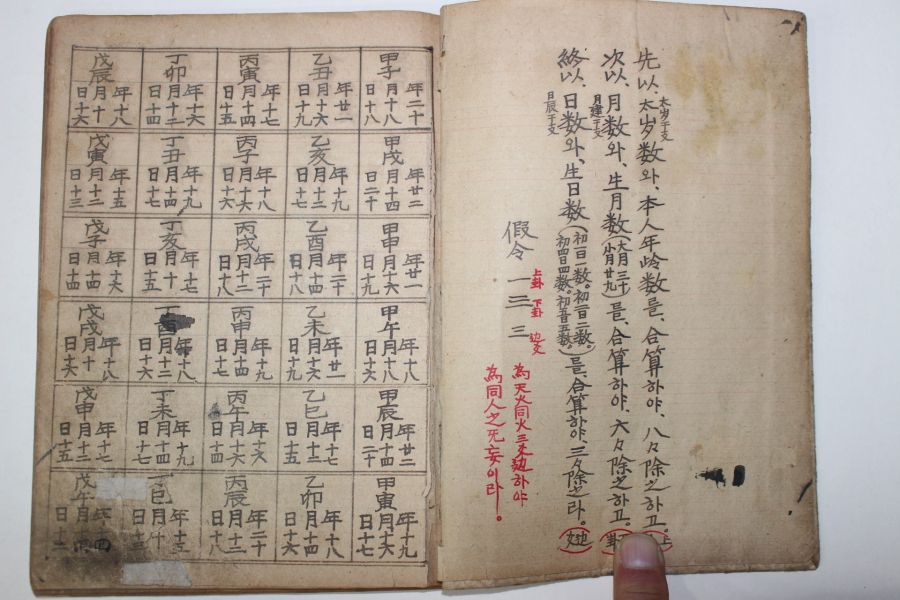 太岁干支
先以、太岁数와、本人年岭数를、合算하야、八々除之하고。上
月建干支
次以、月数와、生月数(大月三十 小月廿九)를、合算하야、六々除之하고。
日辰干支
終以、日数와、生日数(初一日一数。初二日二数。初四日四数。初五日五数。)를、合算하야、三々除之라。(边爻)
假令 一 三 三
上卦 下卦 边爻
為天火同火三爻边하야
為同人之无妄이라。
甲子 年二十 月十八 日十八
乙丑 年廿一 月十六 日十九
丙寅 年十七 月十四 日十五
丁卯 年十六 月十二 日十四
戊辰 年十八 月十八 日十六
甲戌 年廿二 月十四 日二十
乙亥 年十九 月十二 日十七
丙子 年十八 月十六 日十六
丁丑 年十九 月十四 日十七
戊寅 年十五 月十二 日十三
甲申 年廿一 月十六 日十九
乙酉 年二十 月十四 日十八
丙戌 年二十 月十二 日十八
丁亥 年十七 月十 日十五
戊子 年十六 月十四 日十四
甲午 年十八 月十八 日十六
乙未 年廿一 月十六 日十九
丙申 年十九 月十四 日十七
丁酉 年十八 月十二 日十六
戊戌 年十八 月十 日十六
甲辰 年廿二 月十四 日二十
乙巳 年十七 月十二 日十五
丙午 年十六 月十六 日十四
丁未 年十九 月十四 日十七
戊申 年十七 月十二 日十五
甲寅 年十九 月十六 日十七
乙卯 年十八 月十四 日十六
丙辰 年二十 月十二 日十八
丁巳 年十五 月十 日十三
戊午 年十四 月 日十二